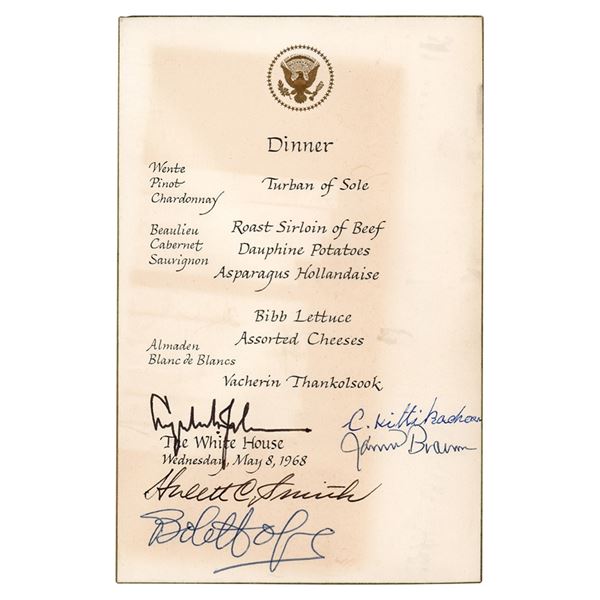 Dinner
Wente
Pinot
Chardonnay
Turban of Sole
Beaulieu
Cabernet
Sauvignon
Roast Sirloin of Beef
Dauphine Potatoes
Asparagus Hollandaise
Bibb Lettuce
Assorted Cheeses
Almaden
Blanc de Blancs
Vacherin Thankolsook
The White House
Wednesday, May 8, 1968
Hulett C. Smith